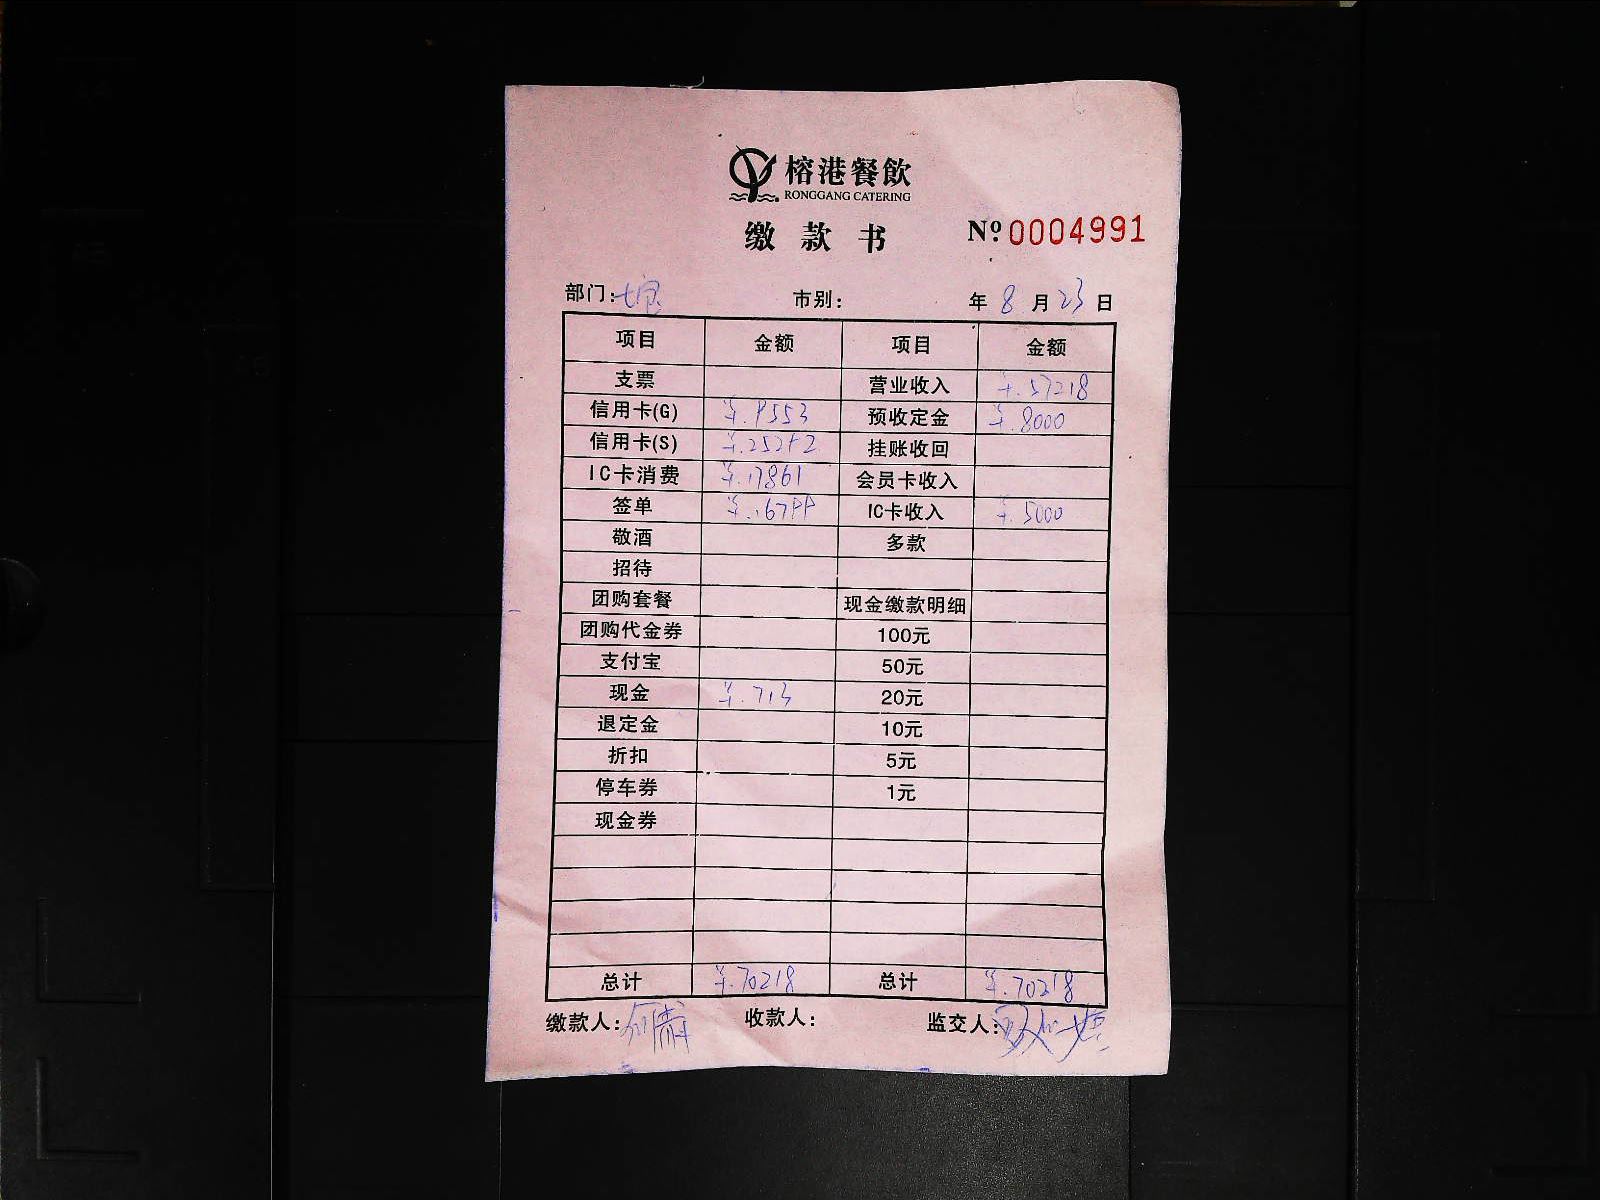 榕港餐飲
RONGGANG CATERING
缴款书 Nº: 0004991
部门: 七宝 市别: 年 8 月 23 日
项目 金额 项目 金额
支票 营业收入 ¥.57218
信用卡(G) ¥.9553 预收定金 ¥.8000
信用卡(S) ¥.25292 挂账收回
IC卡消费 ¥.17861 会员卡收入
签单 ¥.16799 IC卡收入 ¥.5000
敬酒 多款
招待
团购套餐 现金缴款明细
团购代金券 100元
支付宝 50元
现金 ¥.713 20元
退定金 10元
折扣 5元
停车券 1元
现金券
总计 ¥.70218 总计 ¥.70218
缴款人: 收款人: 监交人: